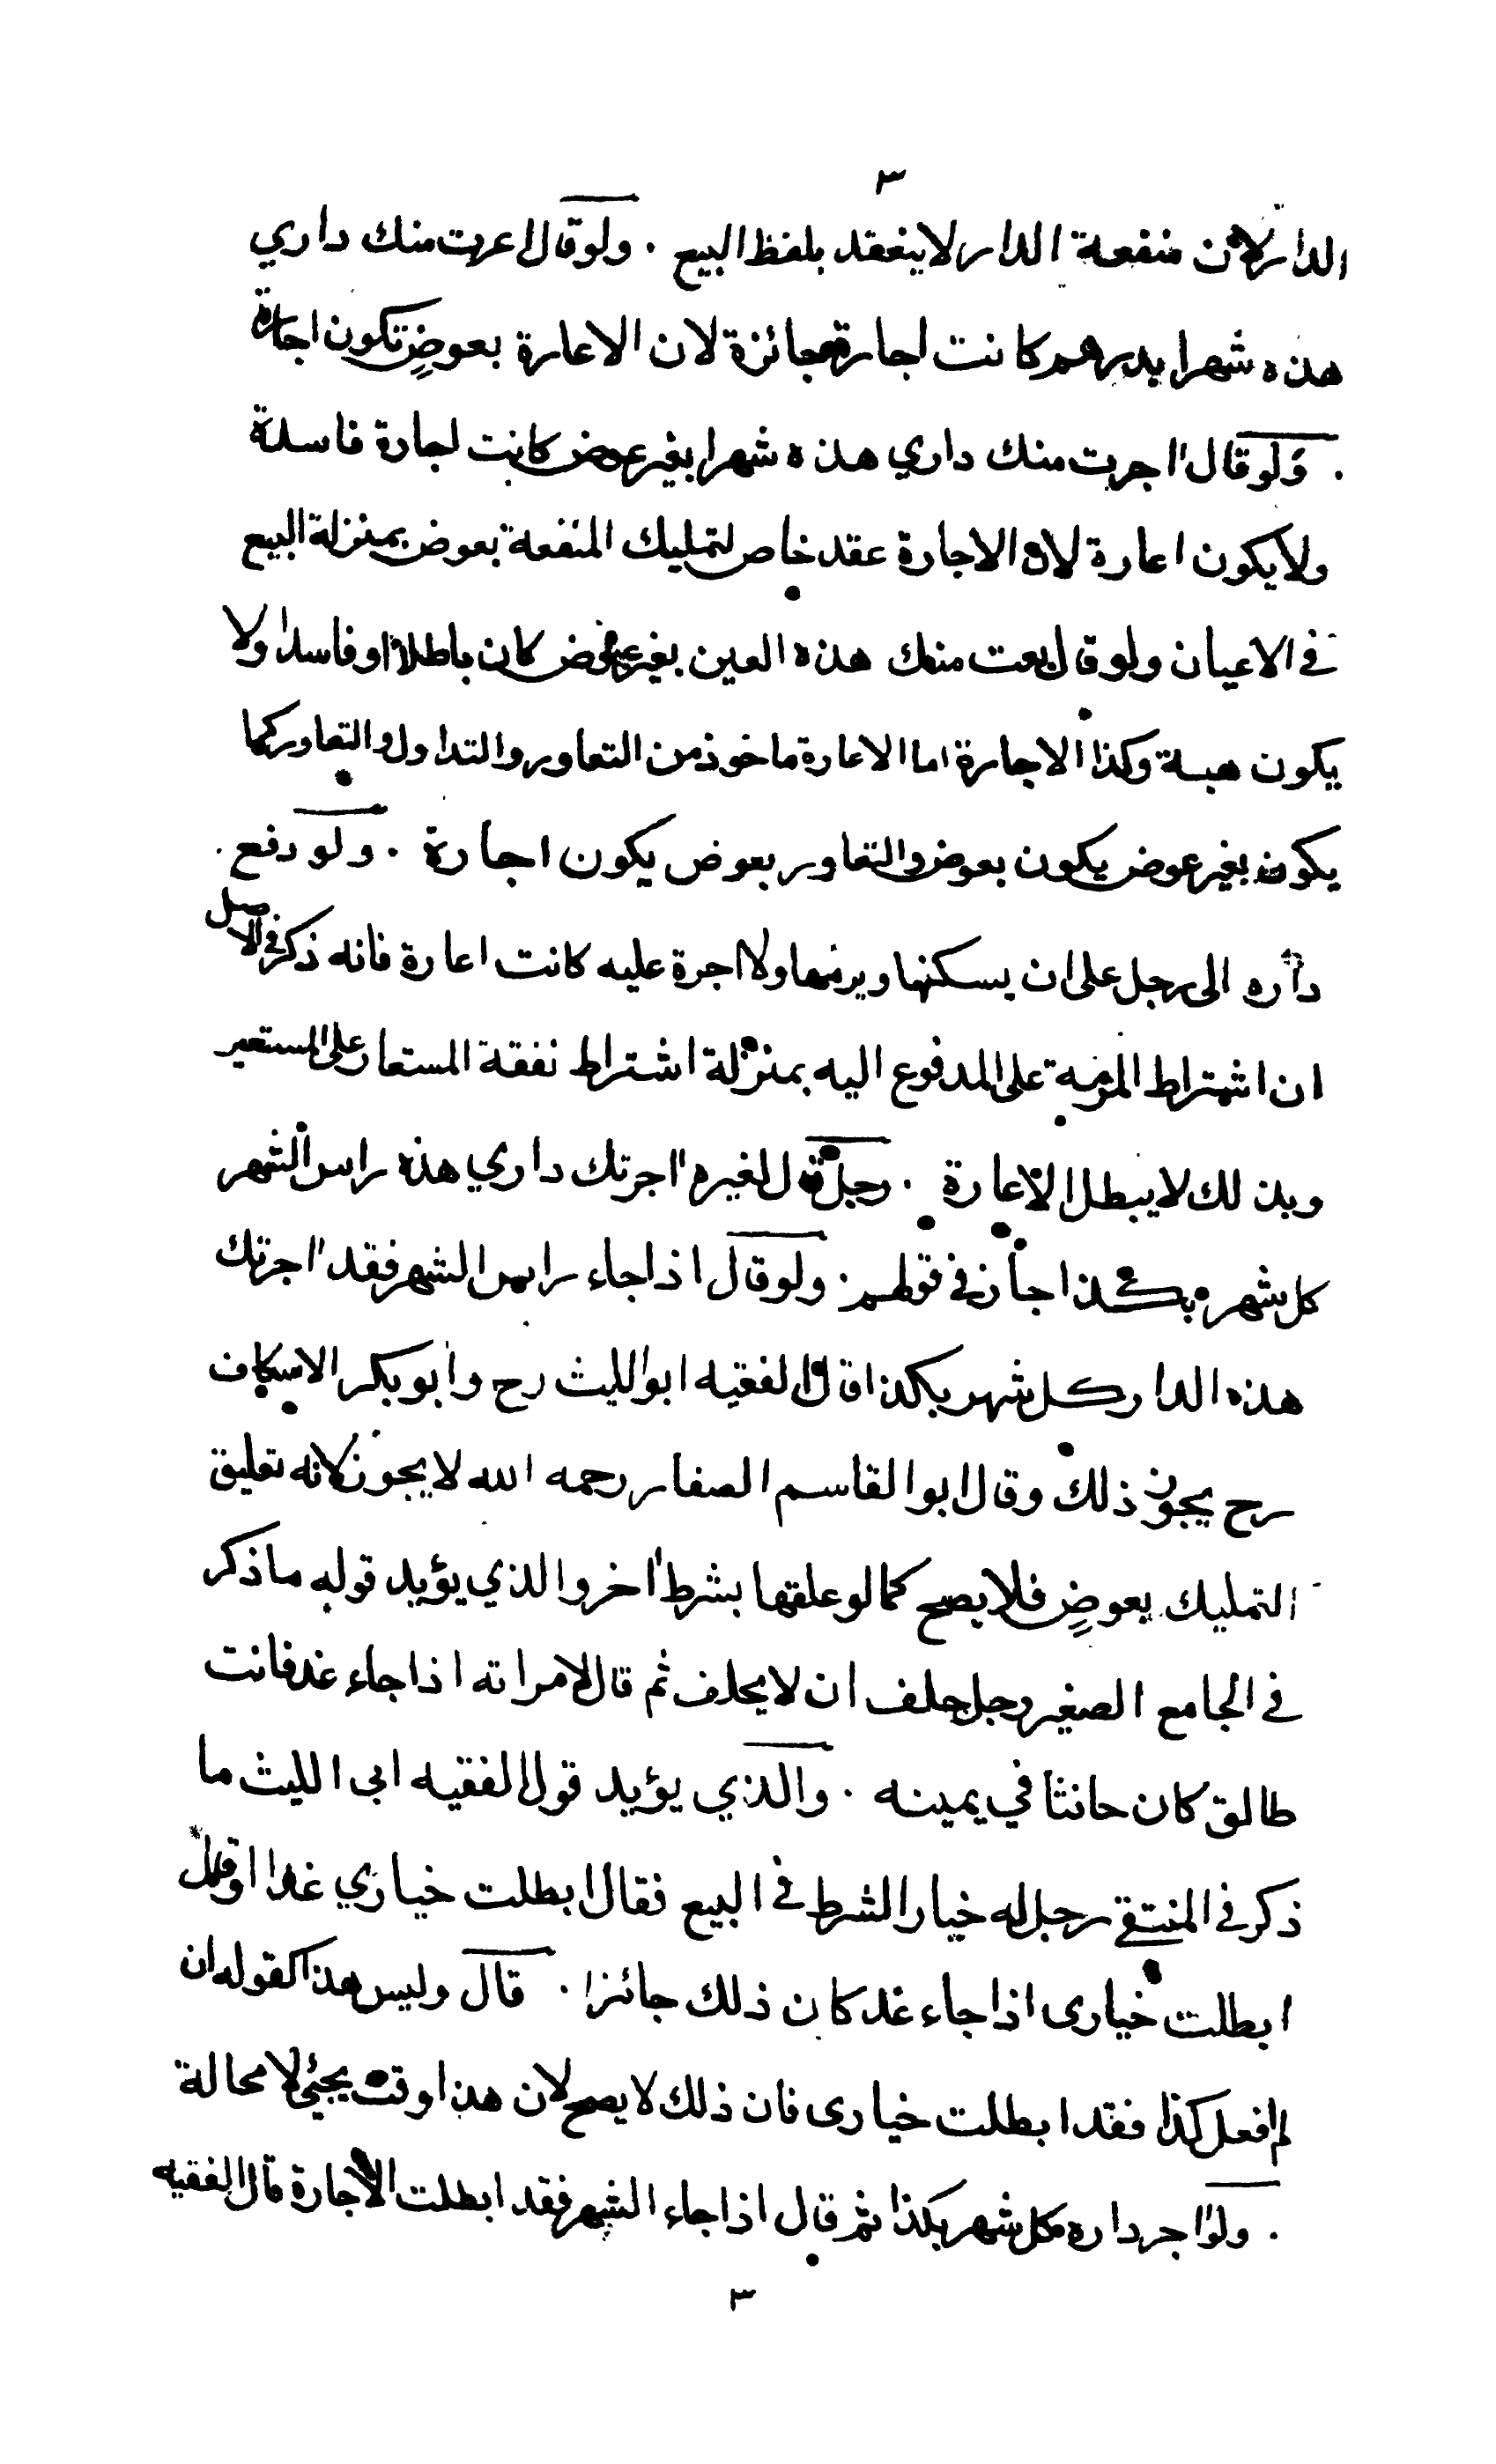 ٣
الدار لان منفعة الدار لا ينعقد بلفظ البيع . ولو قال اعرت منك داري
هذه شهرا بدرهم كانت اجارة جائزة لان الاعارة بعوضٍ تكون اجارة
. ولو قال اجرت منك داري هذه شهرا بغير عوض كانت اجارة فاسدة
ولا يكون اعارة لان الاجارة عقد خاص لتمليك المنفعة بعوض بمنزلة البيع
في الاعيان ولو قال بعت منك هذه العين بغير عوض كان باطلا او فاسدا ولا
يكون هبة وكذا الاجارة اما الاعارة ماخوذ من التعاور والتداول والتعاور كما
يكون بغير عوض يكون بعوض والتعاور بعوض يكون اجارة . ولو دفع
داره الى رجل على ان يسكنها ويرمها ولا اجرة عليه كانت اعارة فانه ذكر في الاصل
ان اشتراط المرمة على المدفوع اليه بمنزلة اشتراط نفقة المستعار على المستعير
وبذلك لا يبطل الاعارة . رجل قال لغيره اجرتك داري هذه راس الشهر
كل شهر بكذا جاز في قولهم . ولو قال اذا جاء راس الشهر فقد اجرتك
هذه الدار كل شهر بكذا قال الفقيه ابو الليث رح وابو بكر الاسكاف
رح يجوز ذلك وقال ابو القاسم الصفار رحمه الله لا يجوز لانه تعليق
التمليك بعوضٍ فلا يصح كما لو علقها بشرط اخر والذي يؤيد قوله ما ذكر
في الجامع الصغير رجل حلف ان لا يحلف ثم قال لامراته اذا جاء غد فانت
طالق كان حانثا في يمينه . والذي يؤيد قول الفقيه ابي الليث ما
ذكر في المنتقى رجل له خيار الشرط في البيع فقال ابطلت خياري غدا او قال
ابطلت خياري اذا جاء غد كان ذلك جائزا . قال وليس هذا كقوله ان
لم افعل كذا فقد ابطلت خياري فان ذلك لا يصح لان هذا وقت يجئ لا محالة
. ولو اجر داره كل شهر بكذا ثم قال اذا جاء الشهر فقد ابطلت الاجارة قال الفقيه
٣